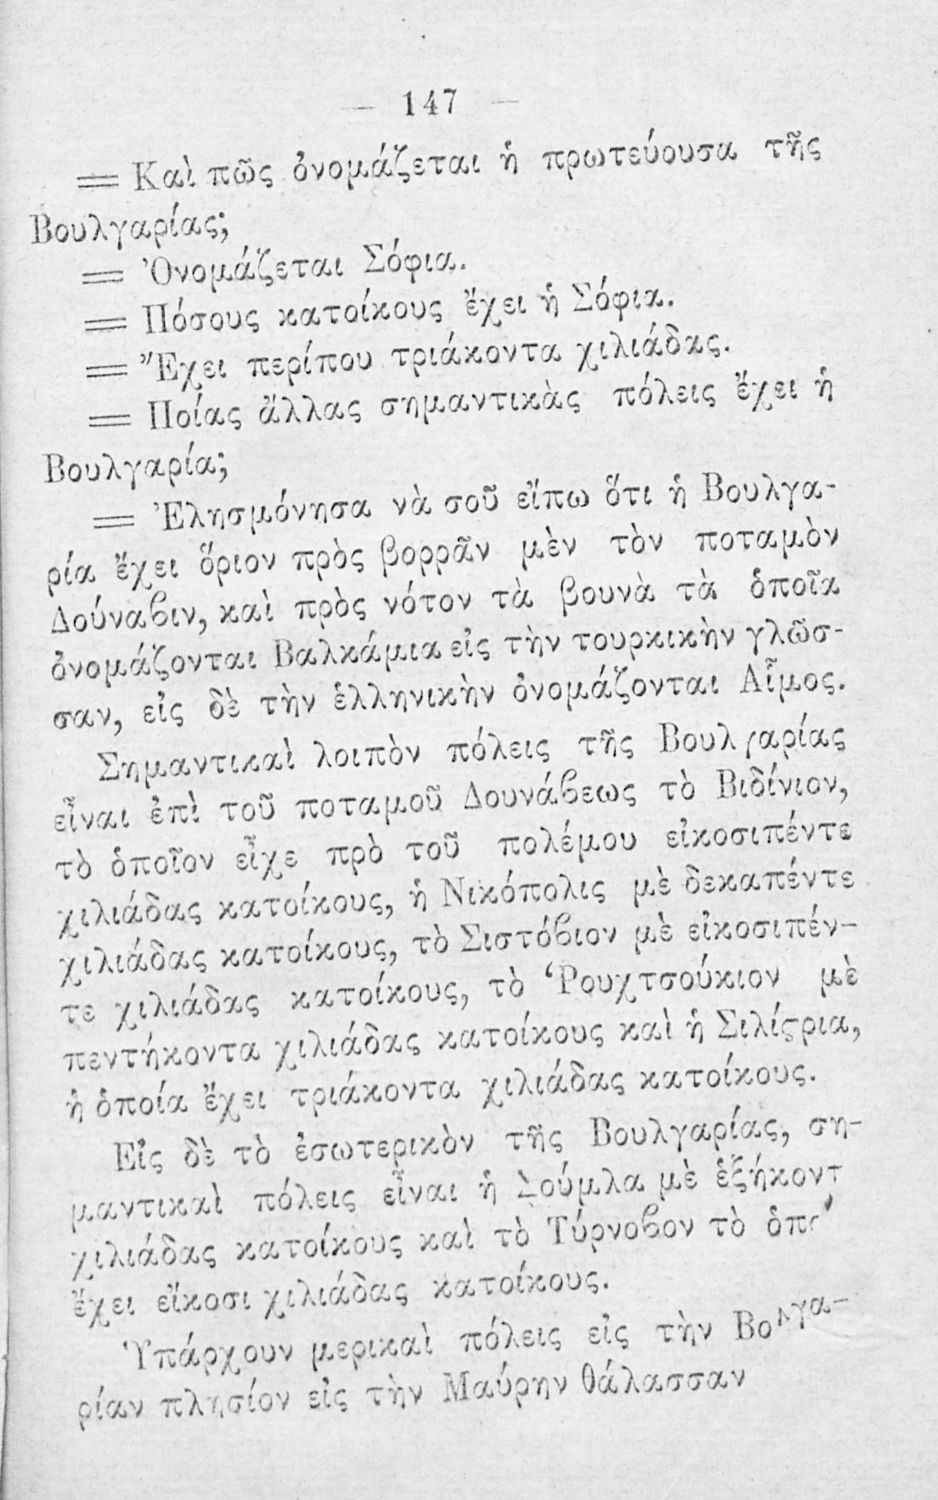 — 147 —
= Καὶ πῶς ὀνομάζεται ἡ πρωτεύουσα τῆς
Βουλγαρίας;
= Ὀνομάζεται Σόφια.
= Πόσους κατοίκους ἔχει ἡ Σόφια.
= Ἔχει περίπου τριάκοντα χιλιάδας.
= Ποίας ἄλλας σημαντικὰς πόλεις ἔχει ἡ
Βουλγαρία;
= Ἐλησμόνησα νὰ σοῦ εἴπω ὅτι ἡ Βουλγα-
ρία ἔχει ὅριον πρὸς βορρᾶν μὲν τὸν ποταμὸν
Δούναϐιν, καὶ πρὸς νότον τὰ βουνὰ τὰ ὁποῖα
ὀνομάζονται Βαλκάμια εἰς τὴν τουρκικὴν γλῶσ-
σαν, εἰς δὲ τὴν ἑλληνικὴν ὀνομάζονται Αἷμος.
Σημαντικαὶ λοιπὸν πόλεις τῆς Βουλγαρίας
εἶναι ἐπὶ τοῦ ποταμοῦ Δουνάϐεως τὸ Βιδίνιον,
τὸ ὁποῖον εἶχε πρὸ τοῦ πολέμου εἰκοσιπέντε
χιλιάδας κατοίκους, ἡ Νικόπολις μὲ δεκαπέντε
χιλιάδας κατοίκους, τὸ Σιστόϐιον μὲ εἰκοσιπέν-
τε χιλιάδας κατοίκους, τὸ Ῥουχτσούκιον μὲ
πεντήκοντα χιλιάδας κατοίκους καὶ ἡ Σιλίςρια,
ἡ ὁποία ἔχει τριάκοντα χιλιάδας κατοίκους.
Εἰς δὲ τὸ ἐσωτερικὸν τῆς Βουλγαρίας, ση-
μαντικαὶ πόλεις εἶναι ἡ Σούμλα μὲ ἑξήκοντ
χιλιάδας κατοίκους καὶ τὸ Τύρνοϐον τὸ
ἔχει εἴκοσι χιλιάδας κατοίκους.
Ὑπάρχουν μερικαὶ πόλεις εἰς τὴν Βολγα-
ρίαν πλησίον εἰς τὴν Μαύρην θάλασσαν